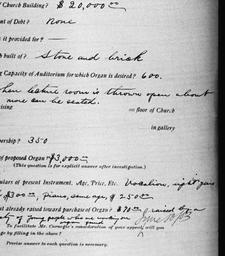 Church Building? $20,000 00
nt of Debt? None
is it provided for? —
ch built of? Stone and brick
g Capacity of Auditorium for which Organ is desired? 600.
When lecture room is thrown open about
more can be seated.
on floor of Church
in gallery
bership? 350
of proposed Organ? $3,000 00
(This question is for explicit answer after investigation.)
ulars of present Instrument, Age, Price, Etc. Vocalion, eight years
$300, piano, same age, $250
nt already raised toward purchase? $70 raised by a
of young people who are working on
organ fund
To facilitate Mr. Carnegie's consideration of your appeal will you
ge by filling in the above?
Precise answer to each question is necessary.